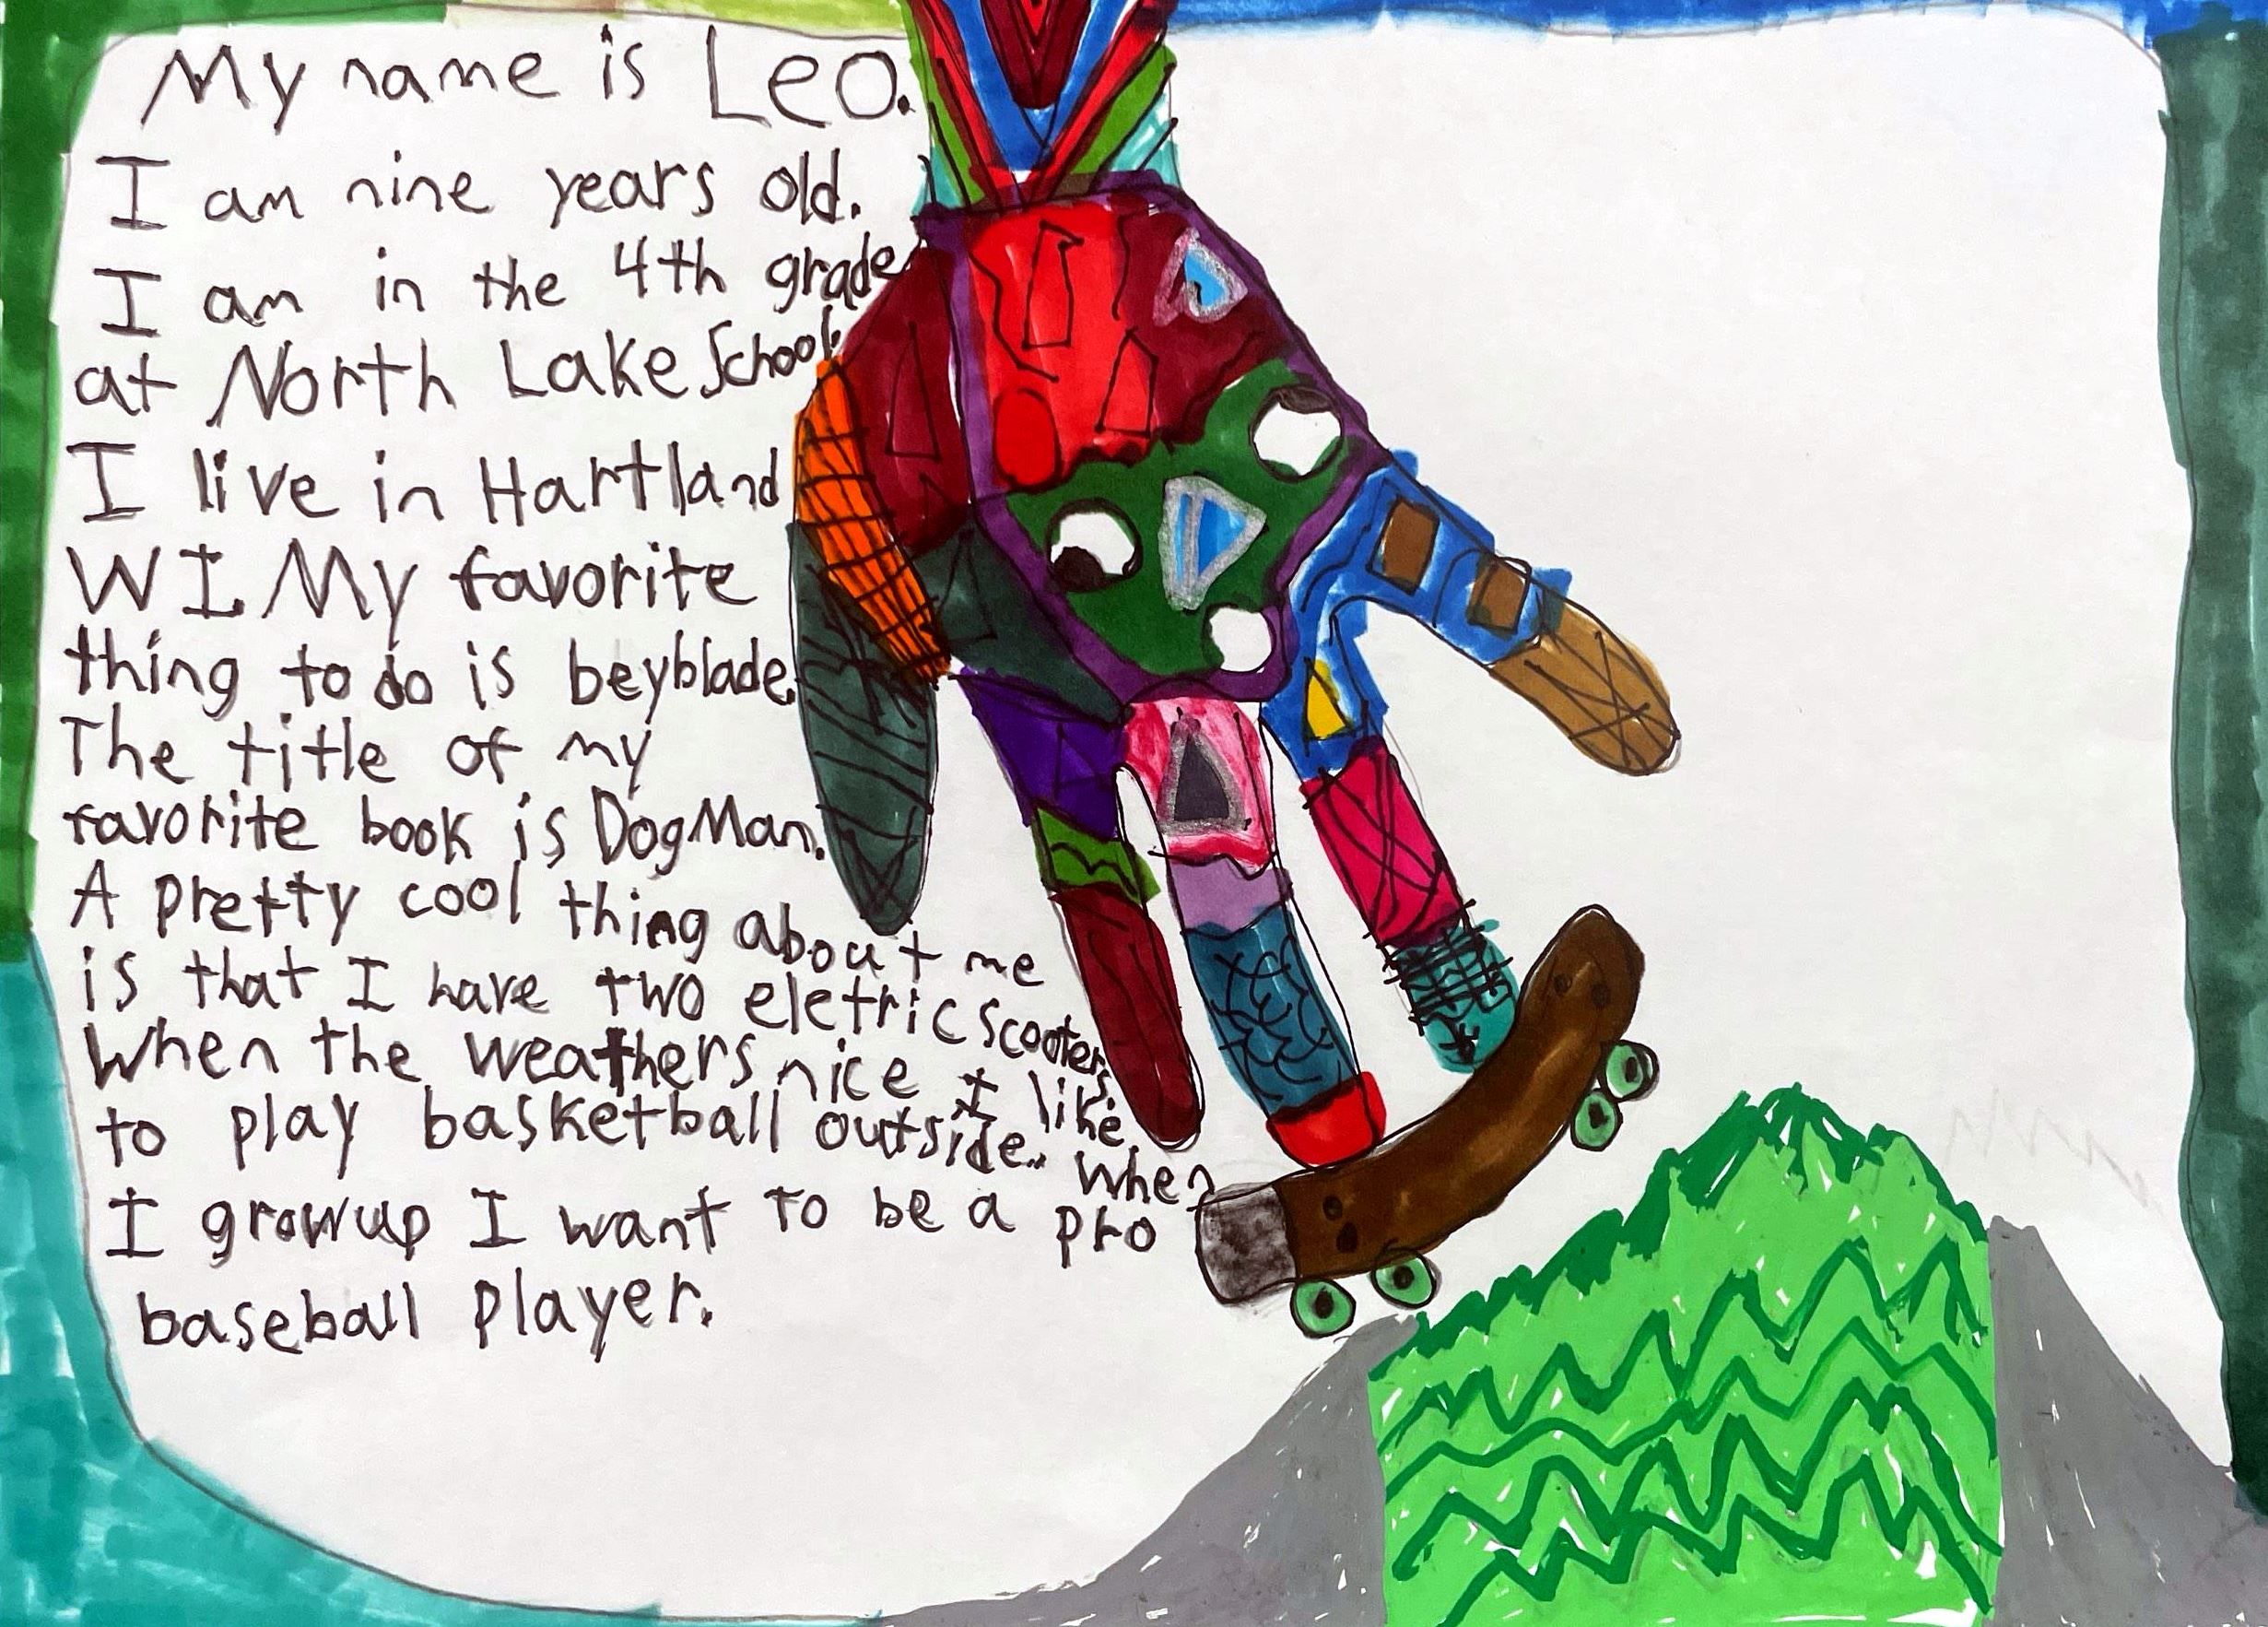 My name is Leo.
I am nine years old.
I am in the 4th grade
at North Lake School.
I live in Hartland
WI. My favorite
thing to do is beyblade.
The title of my
favorite book is DogMan.
A pretty cool thing about me
is that I have two eletric scooters.
When the weathers nice I like
to play basketball outside. When
I growup I want to be a pro
baseball player.